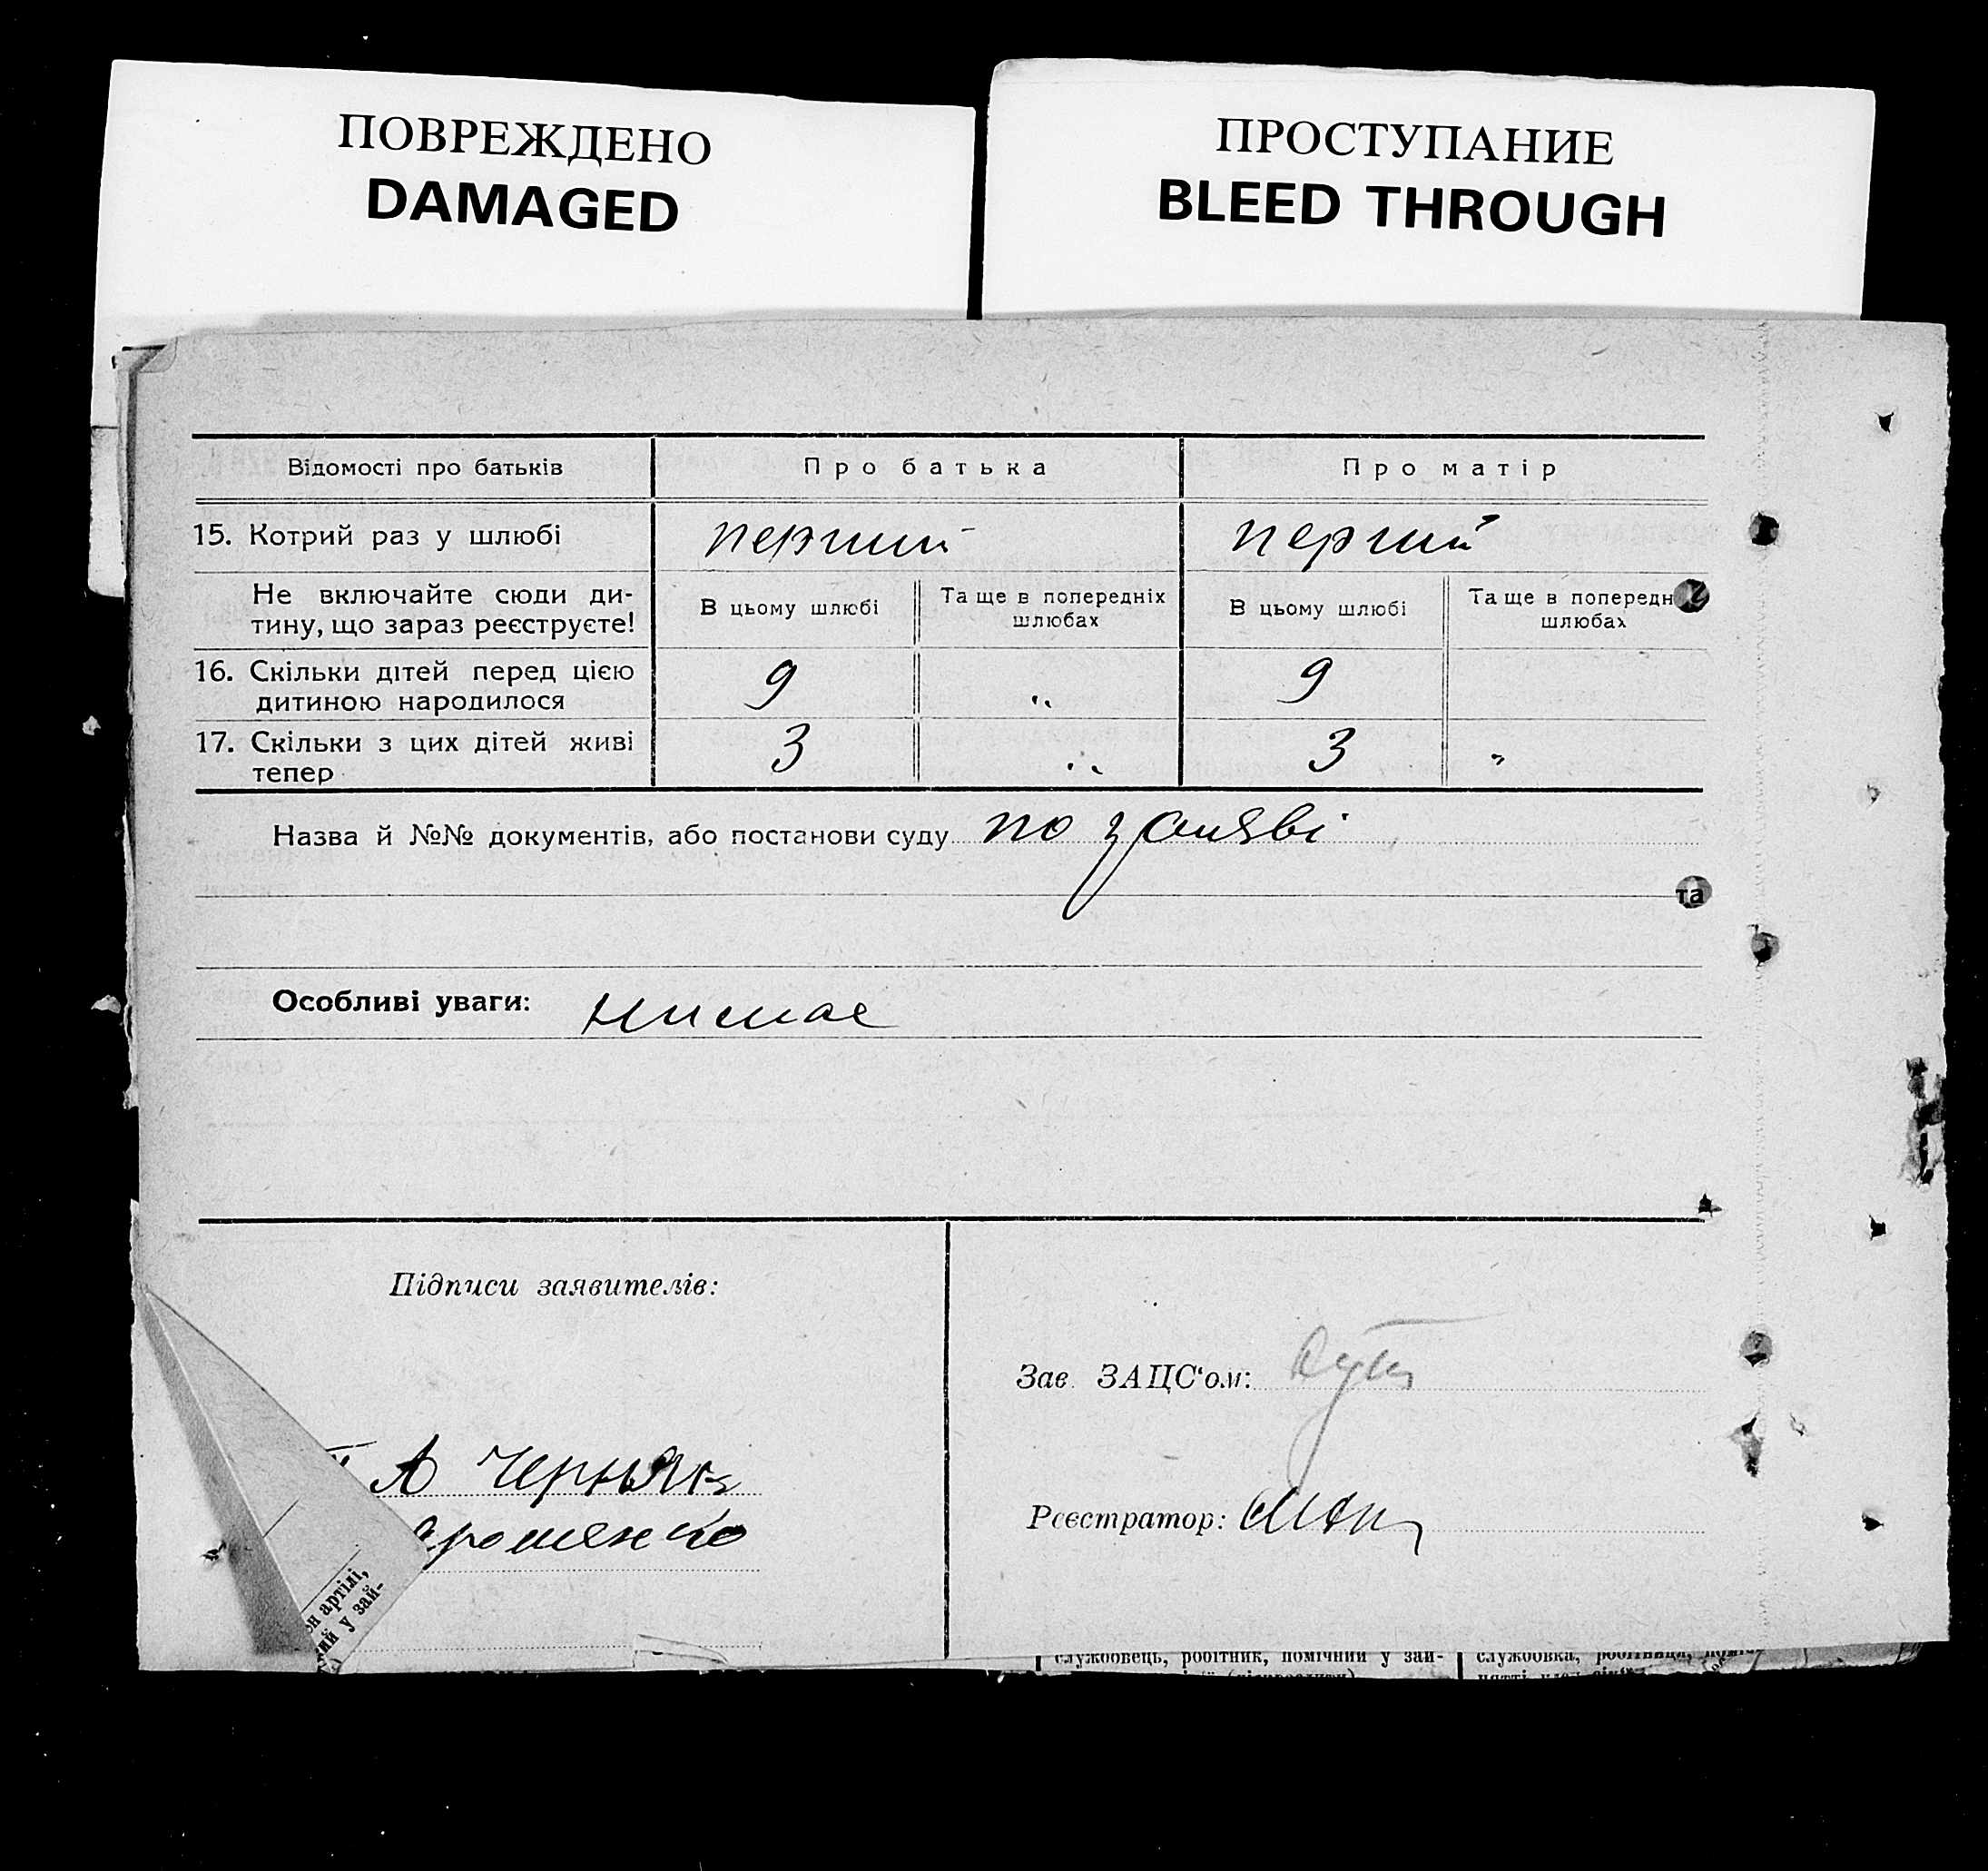 ПОВРЕЖДЕНО
DAMAGED
ПРОСТУПАНИЕ
BLEED THROUGH
Відомості про батьків Про батька Про матір
15. Котрий раз у шлюбі перший перший
Не включайте сюди ди-
тину, що зараз реєструєте!
В цьому шлюбі
Та ще в попередніх
шлюбах
В цьому шлюбі
Та ще в попередн
шлюбах
16. Скільки дітей перед цією
дитиною народилося
9 " 9
17. Скільки з цих дітей живі
тепер
3 " 3 "
Назва й №№ документів, або постанови суду по заяві
та
Особливі уваги: немає
Підписи заявителів:
А Черняк
Зав. ЗАЦС'ом:
Реєстратор:
он артілі,
ний у зай-
службовець, робітник, помічний у зай-
службовка, робітниця,